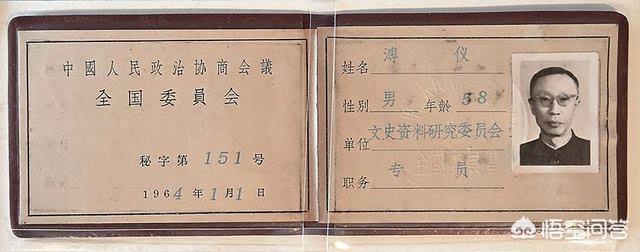 中國人民政治协商会議
全国委員会
秘字第 151 号
1964年1月1日
姓名 溥 仪
性别 男 年龄 58
单位 文史资料研究委员会
职务 专 员
悟空问答